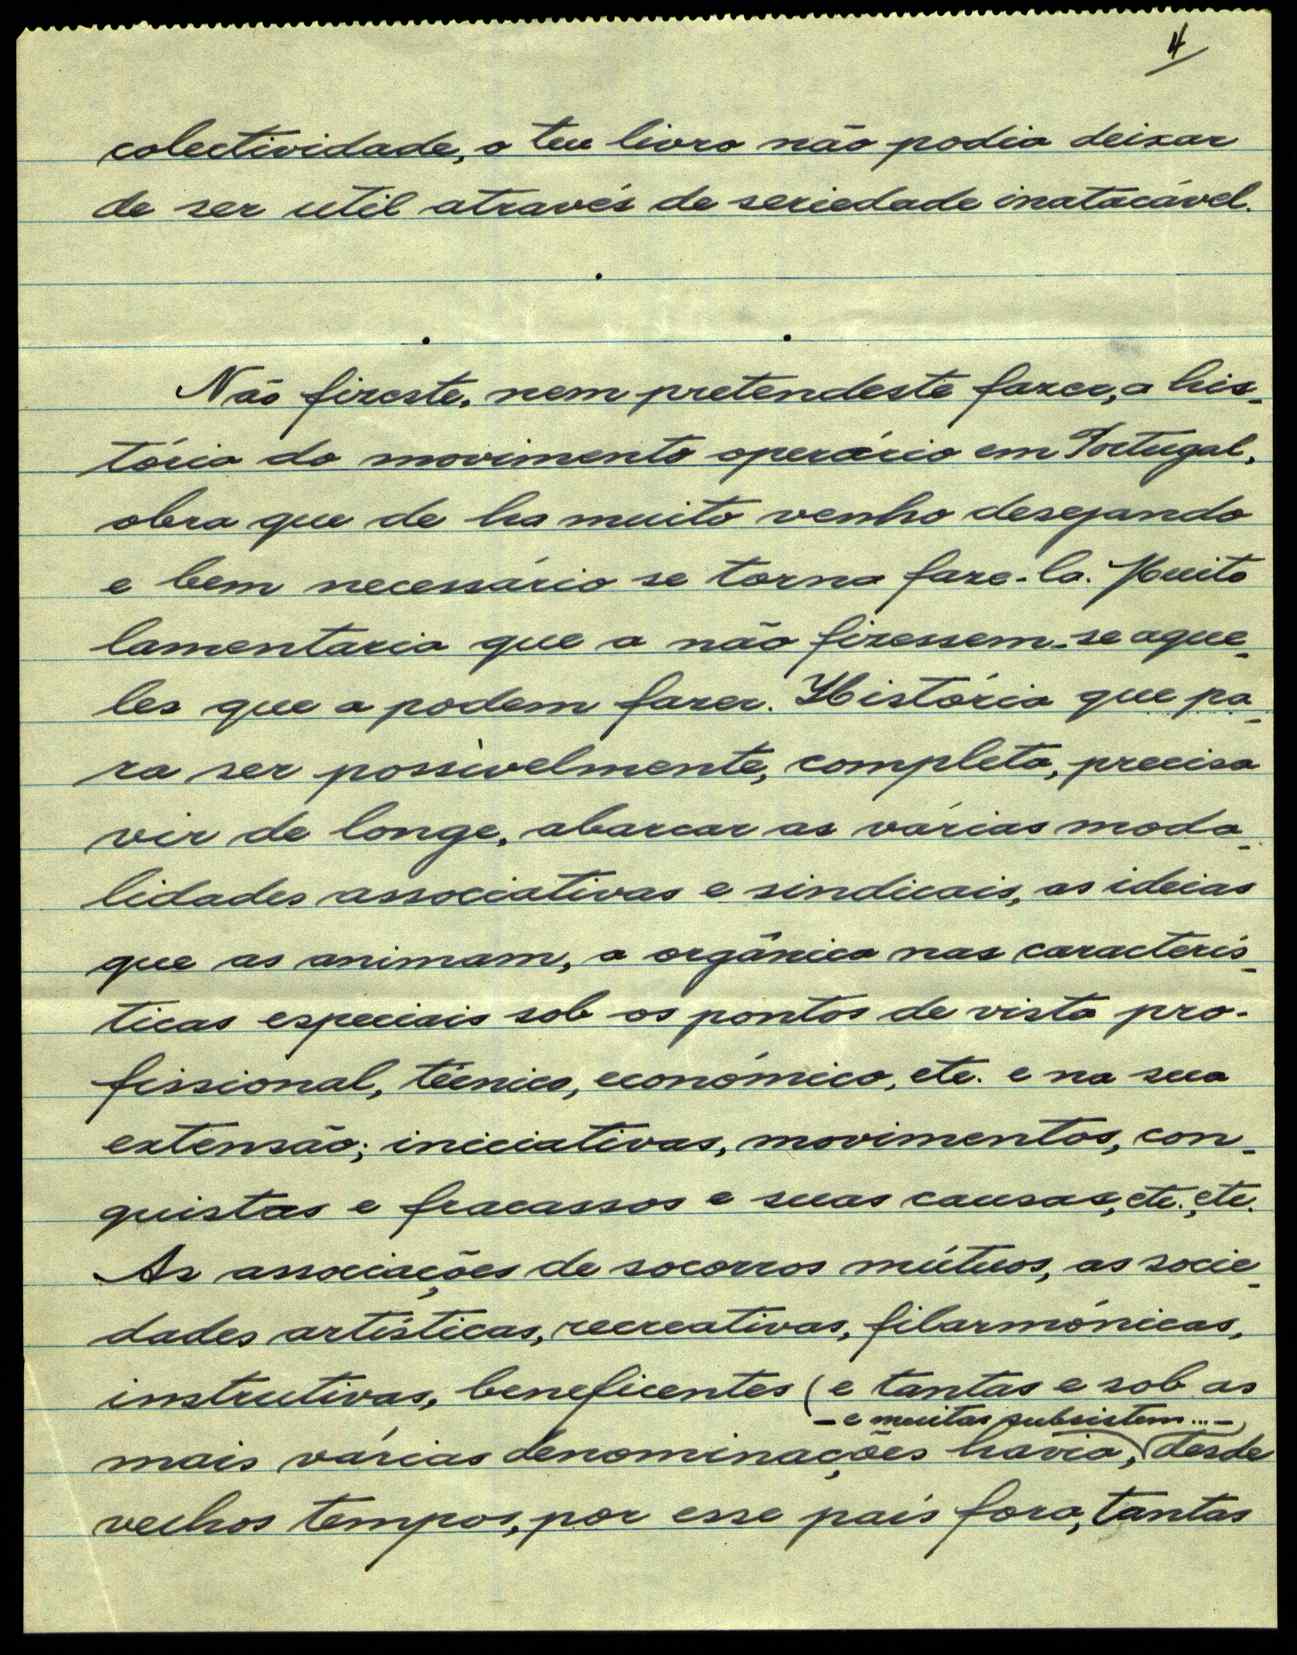 4
colectividade, o teu livro não podia deixar
de ser util através de seriedade inatacável.
Não fizeste, nem pretendeste fazer, a his-
tória do movimento operário em Portugal,
obra que de ha muito venho desejando
e bem necessário se torna faze-la. Muito
lamentaria que a não fizessem-se aque-
les que a podem fazer. História que pa-
ra ser possìvelmente, completa, precisa
vir de longe, abarcar as várias moda-
lidades associativas e sindicais, as ideias
que as animam, a orgânica nas caracterís-
ticas especiais sob os pontos de vista pro-
fissional, técnico, económico, etc. e na sua
extensão; iniciativas, movimentos, con-
quistas e fracassos e suas causas, etc. etc.
As associações de socorros mútuos, as socie-
dades artísticas, recreativas, filarmónicas,
instrutivas, beneficentes (e tantas e sob as
- e muitas subsistem... -
mais várias denominações havia, desde
velhos tempos, por esse país fora, tantas